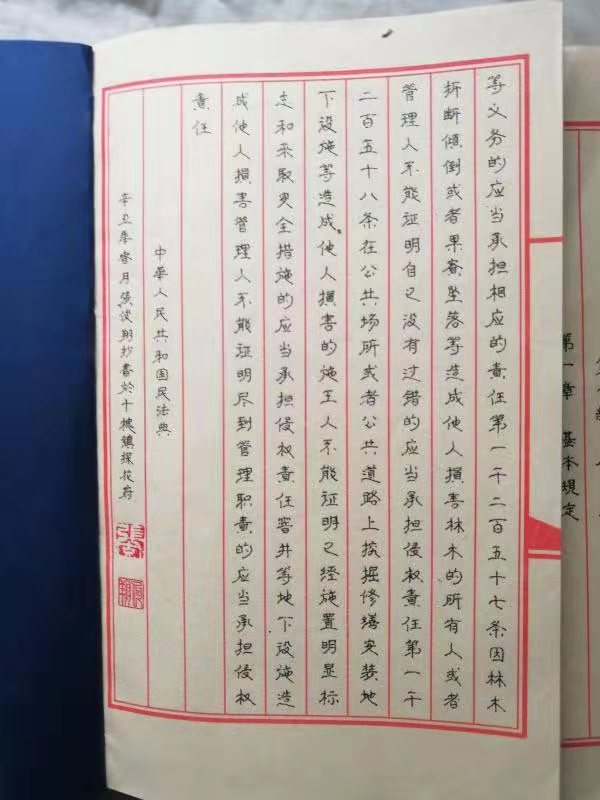 等义务的应当承担相应的责任第一千二百五十七条因林木
折断傾倒或者果實坠落等造成他人損害林木的所有人或者
管理人不能证明自己没有过错的应当承担侵权责任第一千
二百五十八条在公共场所或者公共道路上挖掘修缮安装地
下设施等造成他人損害的施工人不能证明已經施置明显标
志和采取安全措施的应当承担侵权责任窨井等地下设施造
成他人損害管理人不能证明尽到管理职责的应当承担侵权
责任
中華人民共和国民法典
辛丑年 月張俊翔抄書於十 鎮探花府
第一章 基本規定